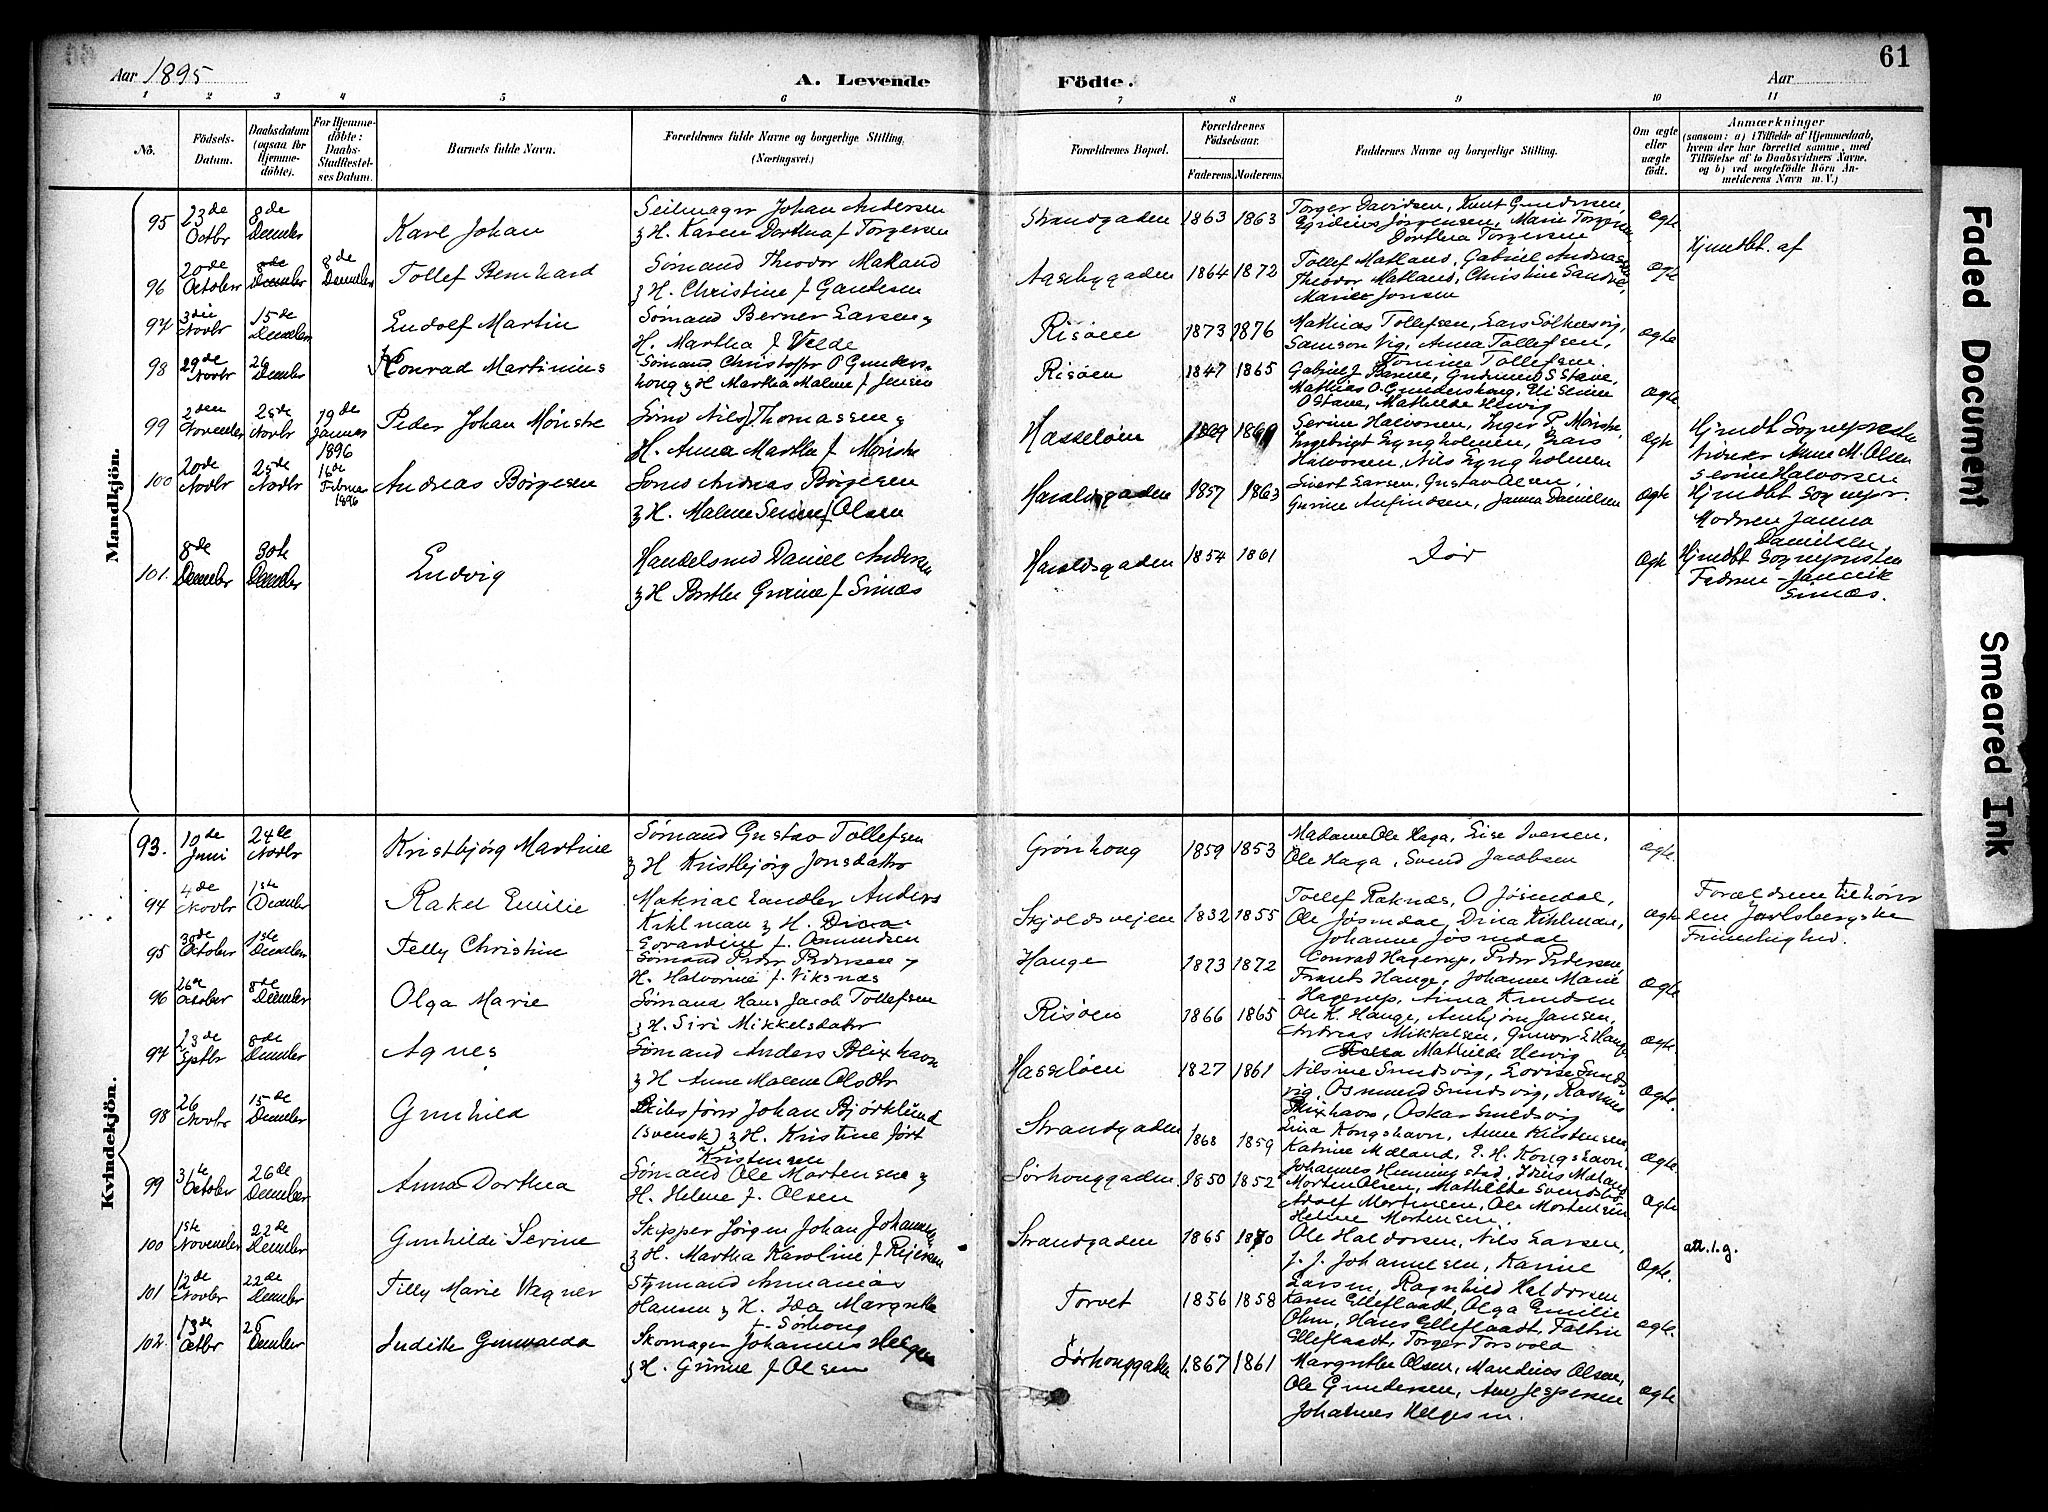 61
Aar 1895
A. Levende
Födte.
Aar
1 2 3 4 5 6 7 8 9 10 11
No.
Födsels-
Datum.
Daabsdatum
(ogsaa for
Hjemme-
döbte).
For Hjemme-
döbte:
Daabs-
Stadfæstel-
ses Datum.
Barnets fulde Navn.
Forældrenes fulde Navne og borgerlige Stilling.
(Næringsvei.)
Forældrenes Bopæl.
Forældrenes
Födselsaar.
Faderens. Moderens.
Faddernes Navne og borgerlige Stilling.
Om ægte
eller
uægte
födt.
Anmærkninger
(saasom: a) i Tilfælde af Hjemmedaab,
hvem der har forrettet samme, med
Tilföielse af to Daabsvidners Navne,
og b) ved uægtefödte Börn An-
melderens Navn m. V.)
Mandkjön.
95
23de
Octbr
8de
Decmber
Karl Johan
Seilmager Johan Andersen
& H. Karen Dorthea f Torgersen
Strandgaden
1863 1863
Torger Davidsen, Knut Gundersen,
Egidius Jørgensen, Marie Torgersen
Dorthea Torgersen
ægte
96
20de
October
8de
Decmber
8de
Decmber
Tollef Bernhard
Sömand Theodor Matland
& H. Christine f Gautesen
Aasebygaden
1864 1872
Tollef Matland, Gabriel Andreassen
Theodor Matland, Christine Sandvik,
Marie Jonsen
ægte
Hjmdbt. af
97
3die
Novbr
15de
Decmber
Ludolf Martin
Sömand Berner Larsen &
H. Martha f Velde
Risöen
1873 1876
Mathias Tollefsen, Lars Sölhusvig,
Samson Vig, Anna Tollefsen,
Tomine Tollefsen
ægte
98
29de
Novbr
26
Decmber
Konrad Martinius
Sömand Christoffer O Gunders-
houg & H Martha Malene f Jensen
Risöen
1847 1865
Mathias O. Gundershoug,
O Stave, Mathilde Hervig
ægte
99
2den
November
25de
Novbr
19de
Januar
1896
Peder Johan Mönstre
Sömd Nils Thomassen &
H. Anna Martha f. Mönstre
Hasselöen
1869
Serine Halvorsen, Inger P. Mönstre,
Ingebrigt Lyngholmen, Lars
Halvorsen, Nils Lyngholmen
ægte
Hjmdbt Sognepræsten
Anne M. Olsen
Serine Halvorsen
100
20de
Novbr
25de
Novbr
16de
Februar
1896
Andreas Börgesen
Sömd Andreas Börgesen
& H. Malene Serine f Olsen
Haraldsgaden
1857 1863
Sivert Larsen, Gustav Olsen,
Gurine Anfindsen, Janna Danielsen
ægte
Hjmdbt Sognepr.
Modren Janna
Danielsen
101.
8de
Decmbr
30te
Decmbr
Ludvig
Handelsmd Daniel Andersen
& H Berthe Gurine f. Simnæs
Haraldsgaden
1854 1861
Död
ægte
Hjmdbt Sognepræsten
Fadren - Jannik
Simnæs.
Kvindekjön.
93.
10de
Juni
24de
Novbr
Kristbjörg Martine
Sömand Gustav Tollefsen
& H Kristbjörg Jonsdatter
Grönhoug
1859 1853
Madame Ole Haga, Lise Iversen,
Ole Haga, Svend Jacobsen
ægte
94
4de
Novbr
1ste
Decmber
Rakel Emilie
Material handler Anders
Kihlman & H. Dina
Edvardine f. Osmundsen
Skjoldsvejen
1832 1855
Tollef Raknæs, O Jösendal,
Ole Jösendal, Dina Kihlman,
Johanne Jösendal
ægte
Forældrene tilhörer
den Jarlsbergske
Frimenighed.
95
October
1ste
Decmber
Telly Christine
Sömand Peder Pedersen &
H. Halvorine f. Viksnæs
Hauge
1873 1872
Conrad Hagerup, Peder Pedersen,
Frants Hauge, Johanne Marie
Hagerup, Anna Knudsen
ægte
96
26de
October
8de
Decmber
Olga Marie
Sömand Hans Jacob Tollefsen
& H. Siri Mikkelsdatter
Risöen
1866 1865
Ole K. Hauge, Anbjörn Jansen,
Andreas Mikkalsen, Gunvor E Hauge
Mathilde Hervig
ægte
97
23de
Septbr
8de
Decmber
Agnes
Sömand Anders Blixhavn
& H Anne Malene Olsdtr
Hasselöen
1827 1861
Nilsine Smedsvig, Lovise Smeds-
vig, Osmund Smedsvig, Rasmus
Blixhavn, Oskar Smedsvig
ægte.
98
26
Novbr
15de
Decmber
Gunhild
Skibsförer Johan Björklund
(svensk) & H. Kristine födt
Kristensen
Strandgaden
1868 1859
Lina Kongshavn, Anne Kristensen,
Katrine Matland, P. H. Kongshavn,
Johannes Hemingstad, Matland
ægte
99
3die
October
26de
Decmber
Anna Dorthea
Sömand Ole Martensen &
H. Helene f. Olsen
Sörhouggaden
1850 1852
Morten Olsen, Mathilde Svendsböe
Adolf Mortensen, Ole Mortensen
Helene Mortensen.
ægte
100
1ste
November
22de
Decmber
Gunhilde Serine
Skipper Jörgen Johan Johannesen
& H. Martha Karoline f Reiersen
Strandgaden
1865 1870
Ole Haldorsen, Nils Larsen,
J. J. Johannesen, Karine
Larsen, Ragnhild Haldorsen
ægte.
att. l. g.
101
12de
Novbr
22de
Decmber
Tilly Marie Wegner
Styrmand Annanias
Hansen & H. Ida Margrethe
f. Sörhoug
Torvet
1856 1858
Karen Elleflaadt, Olga Emilie
Olsen, Hans Elleflaadt, Faltin
Elleflaadt, Torger Torsvold
ægte.
102.
13de
Octbr
26
Decmber
Judithe Gunvalda
Skomager Johannes Helgesen
& H. Gurine f Olsen
Sörhouggaden
1867 1861
Margrethe Olsen, Mandius Olsen,
Ole Gundersen, Ane Jespersen
Johannes Helgesen.
ægte
Faded Document
Smeared Ink